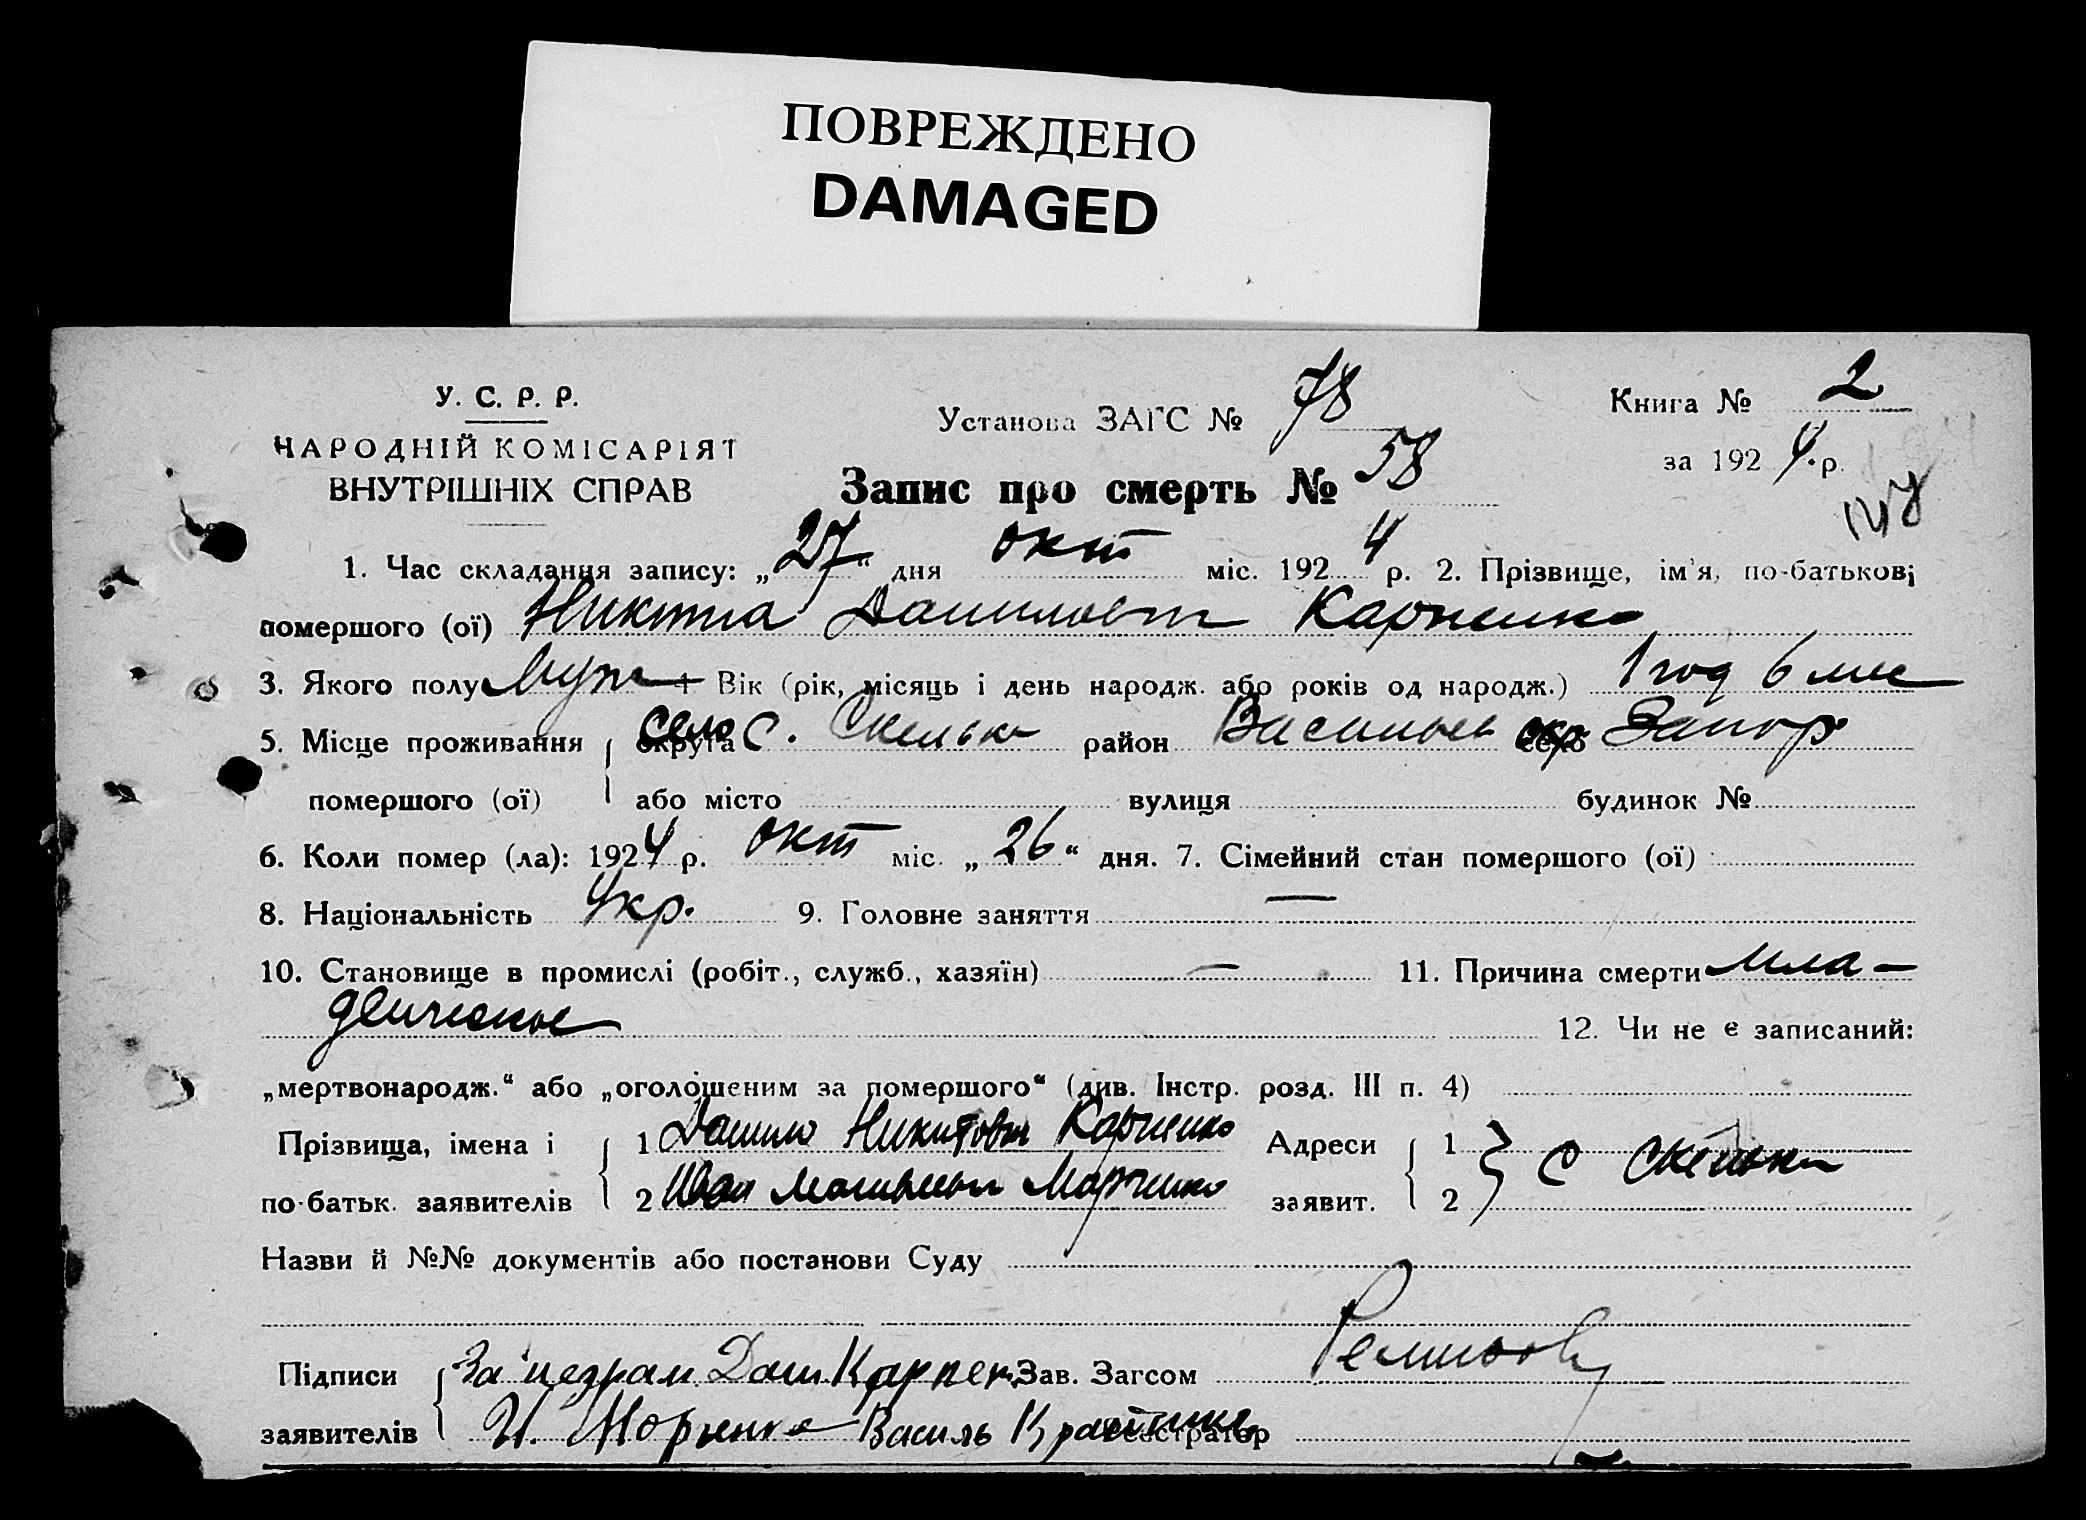 ПОВРЕЖДЕНО
DAMAGED
У. С. Р. Р.
НАРОДНІЙ КОМІСАРІЯТ
ВНУТРІШНІХ СПРАВ
Установа ЗАГС № 78
Книга № 2
за 1924 р.
Запис про смерть № 58
1. Час складання запису: „27“ дня окт міс. 1924 р. 2. Прізвище, ім'я, по-батькові
помершого (ої) Никита Данилович Карпенко
3. Якого полу Муж 4 Вік (рік, місяць і день народж. або років од народж.) 1 год 6 мес
5. Місце проживання округа село с. Скельки район Васильев село окр Запор
помершого (ої) або місто вулиця будинок №
6. Коли помер (ла): 1924 р. окт міс. „26“ дня. 7. Сімейний стан помершого (ої)
8. Національність Укр. 9. Головне заняття —
10. Становище в промислі (робіт., служб., хазяїн) — 11. Причина смерти мла-
денческое 12. Чи не є записаний:
„мертвонародж.“ або „оголошеним за помершого“ (див. Інстр. розд. III п. 4)
Прізвища, імена і 1 Данило Никитович Карпенко Адреси 1 с Скельки
по-батьк. заявителів 2 Иван Марченко заявит. 2
Назви й №№ документів або постанови Суду
Підписи За Дан Карпен Зав. Загсом
заявителів И. Марченко Василь Реєстратор